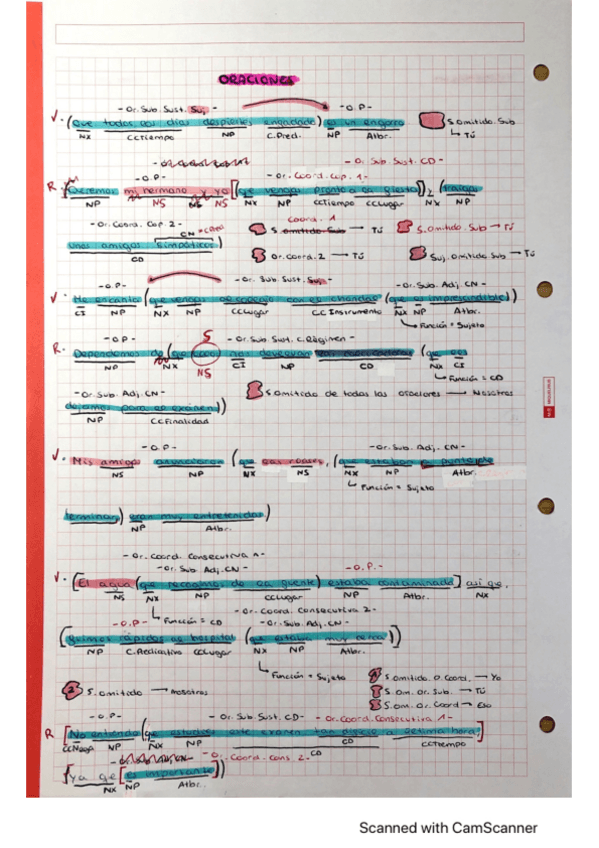 ORACIONES
- Or. Sub. Sust. Suj - - O.P -
V · (Que todos los días despiertes enfadado) es un engorro S. Omitido. Sub
NX CCTiempo NP C.Pred. NP Atbr. Tú
- Or. Sub. Sust. CD -
- O.P - - Or. Coord. Cop. 1 -
R · Queremos mi hermano y yo [(que vengas pronto a la fiesta) y (traigas
NP NS NX NS NX NP CCTiempo CCLugar NP
- Or. Coord. Cop. 2 - CN Coord. 1
unos amigos simpáticos) S. Omitido Sub → Tú S. Omitido. Sub → Tú
CD S. Or. Coord. 2 → Tú Suj. Omitido. Sub → Tú
- O.P - - Or. Sub. Sust. Suj - - Or. Sub. Adj. CN -
V · Me encanta (que vengas con las chanclas (que es imprescindible))
CI NP NX NP CCLugar C.C. Instrumento NX NP Atbr.
Función = Sujeto
- O.P - S - Or. Sub. Sust. C. Régimen -
R · Dependemos de (que Paco nos devuelvan (que les
NX NS CI NP CD NX CI
Función = CD
- Or. Sub. Adj. CN - S. Omitido de todas las oraciones → Nosotros
dejamos para el examen))
NP CCFinalidad
- O.P - - Or. Sub. Adj. CN -
V · Mis amigos (que las clases, (que estaban a punto de
NS NP NX NS NX NP Atbr.
Función = Sujeto
terminar,) eran muy entretenidas)
NP Atbr.
- Or. Coord. Consecutiva 1 -
- Or. Sub. Adj. CN - - O.P -
V · [El agua (que recogimos de la fuente) estaba contaminada] así que,
NS NX NP CCLugar NP Atbr. NX
Función = CD - Or. Coord. Consecutiva 2 -
- O.P - - Or. Sub. Adj. CN -
[fuimos rápidos al hospital (que estaba muy cerca)]
NP C. Predicativo CCLugar NX NP Atbr.
Función = Sujeto 1 S. Omitido. O. Coord. → Yo
2 S. Omitido → nosotros S. Om. Or. Sub. → Tú
S. Om. Or. Coord → Eso
- O.P - - Or. Sub. Sust. CD - - Or. Coord. Consecutiva 1 -
R [No entiendo (que estudies este examen tan difícil a última hora)]
CCNega NP NX NP CD CCTiempo
- Or. Coord. Cons. 2 -
[Ya que [es importante])
NX NP Atbr.
Scanned with CamScanner